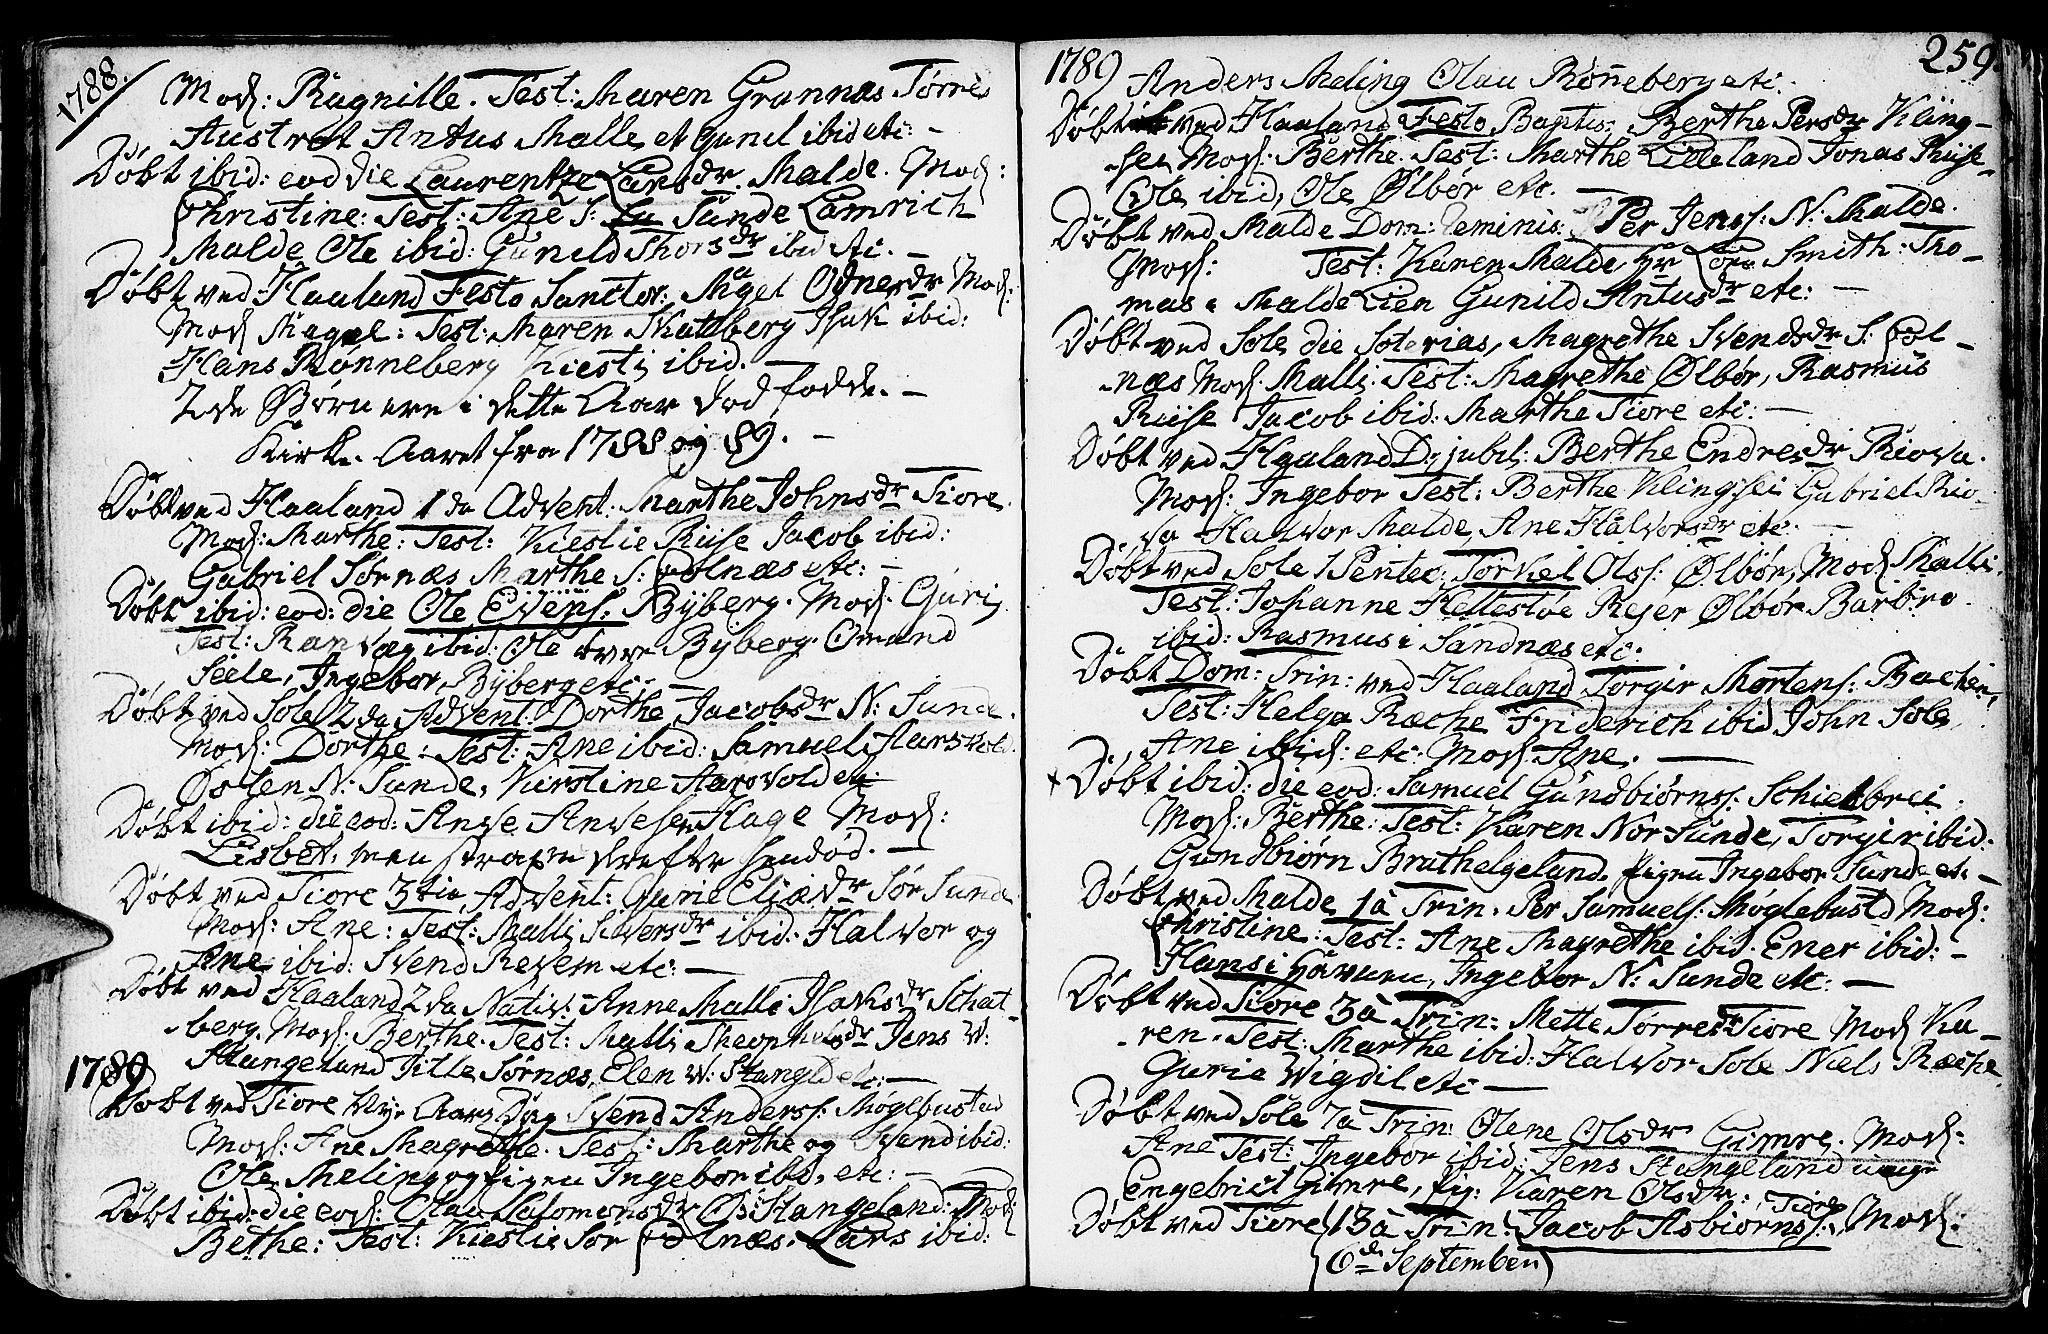 1788.
Mod: Ragnille. Test: Maren Grannæs Tørres
Austrat Antus Malle et Gunil ibid etc: -
Døbt ibid: eod die Laurentze Larsdr. Malde. Mod:
Christine: Test: Ane S: Sunde Lamrich
Malde Ole ibid: Gunild Thorsdr ibid etc. -
Døbt ved Haaland Festo Sanctor: Maget Odnesdr Mod:
Mod Magel: Test: Maren Skatberg Isak ibid:
Hans Rønneberg Kiesti ibid. -
2de Børn ere i dette Aar død fødde. -
Kirke-Aaret fra 1788 og 89. -
Døbt ved Haaland 1da Advent: Marthe Johnsdr Tiore.
Mod: Marthe: Test: Kieslie Riise Jacob ibid:
Gabriel Sørnæs Marthe S: Colnæs etc: -
Døbt ibid: eod: die Ole Evens: Byberg. Mod. Guri
Test: Ranvæg ibid: Ole Byberg Omund
Seele, Ingebor Byberg etc: -
Døbt ved Sole 2da Advent: Dorthe Jacobsdr N: Sunde.
Mod: Dorthe: Test: Ane ibid: Samuel Harsvold
Østen N: Sunde, Kirstine Harsvold etc:
Døbt ibid: die eod: Anve Anvesen Hage Mod:
Lisbet, men strax derefter hendød. -
Døbt ved Tiore 3tie Advent: Gurie Eliædr Sør Sunde
Mod: Ane: Test: Malli Siversdr ibid: Halvor og
Ane ibid: Svend Revem etc: -
Døbt ved Haaland 2da Nativ: Anne Malli Isaksdr Schat-
berg. Mod: Berthe. Test: Malli Jens W:
Stangeland Jitte Sørnæs, Elen W: Stangld etc: -
1789
Døbt ved Tiore Nye Aars Dag Svend Anderss: Møglebustad
Mod: Ane Magrethe. Test: Marthe og Svend ibid:
Ole Meling og pigen Ingebor ibd. etc: -
Døbt ibid: die eod: Olau Salomonsdr Ø: Stangeland: Mod:
Bethe: Test: Kieslie Sør Colnæs. Lars ibid:
1789
259.
Anders Meling Olau Rønneberg etc.
Døbt ved Haaland Festo Baptis: Berthe Persdr Kling-
sei Mod: Berthe. Test: Marthe Lilleland Jonas Riise
Ole ibid, Ole Ølbør etc. -
Døbt ved Malde Dom: Reminis: Per Jenss: N: Malde.
Mod: Test: Karen Malde, Hr Smith: Tho-
mas i Malde Lien Gunild Antusdr etc: -
Døbt ved Sole die Soterias, Magrethe Svendsdr S: Col-
næs Mod. Malli. Test: Magrethe Ølbør, Rasmus
Riise Jacob ibid: Marthe Tiore etc: -
Døbt ved Haaland D: jubil: Berthe Endresdr Riova.
Mod: Ingebor Test: Berthe Klingsei Gabriel Rio-
va Halvor Malde, Ane Halvorsdr etc: -
Døbt ved Sole 1 Pentec: Torkel Olss: Ølbør, Mod Malli.
Test: Johanne Hellestøe Rejer Ølbør Barbro
ibid: Rasmus i Sandnæs etc.
Døbt Dom: Trin: ved Haaland Torgir Mortens: Bachen,
Test: Helga Ræche Friderich ibid John Sole
Ane ibid: etc: Mod. Ane. -
Døbt ibid: die eod: Samuel Gundbiørnss: Schiebrei.
Mod: Berthe: Test: Karen Nor Sunde, Torgir ibid:
Gundbiørn Brathelgeland pigen Ingebor Sunde etc -
Døbt ved Malde 1à Trin. Per Samuels: Møglebustd Mod:
Christine: Test: Ane Magrethe ibid. Ener ibid: -
Hans i Havnen, Ingebor N: Sunde etc: -
Døbt ved Tiore 3à Trin: Mette Tørresdr Tiore Mod Ka-
ren. Test: Marthe ibid: Halvor Sole Niels Ræche
Gurie Wigdil etc -
Døbt ved Sole 7à Trin: Olene Olsdr Gimre. Mod:
Ane Test: Ingebor ibid. Jens Stangeland unge
Engebrict Gimre, pig: Karen Olsdr:
Døbt ved Tiore 13à Trin: Jacob Asbiørnss: Tiore Mod:
6de September